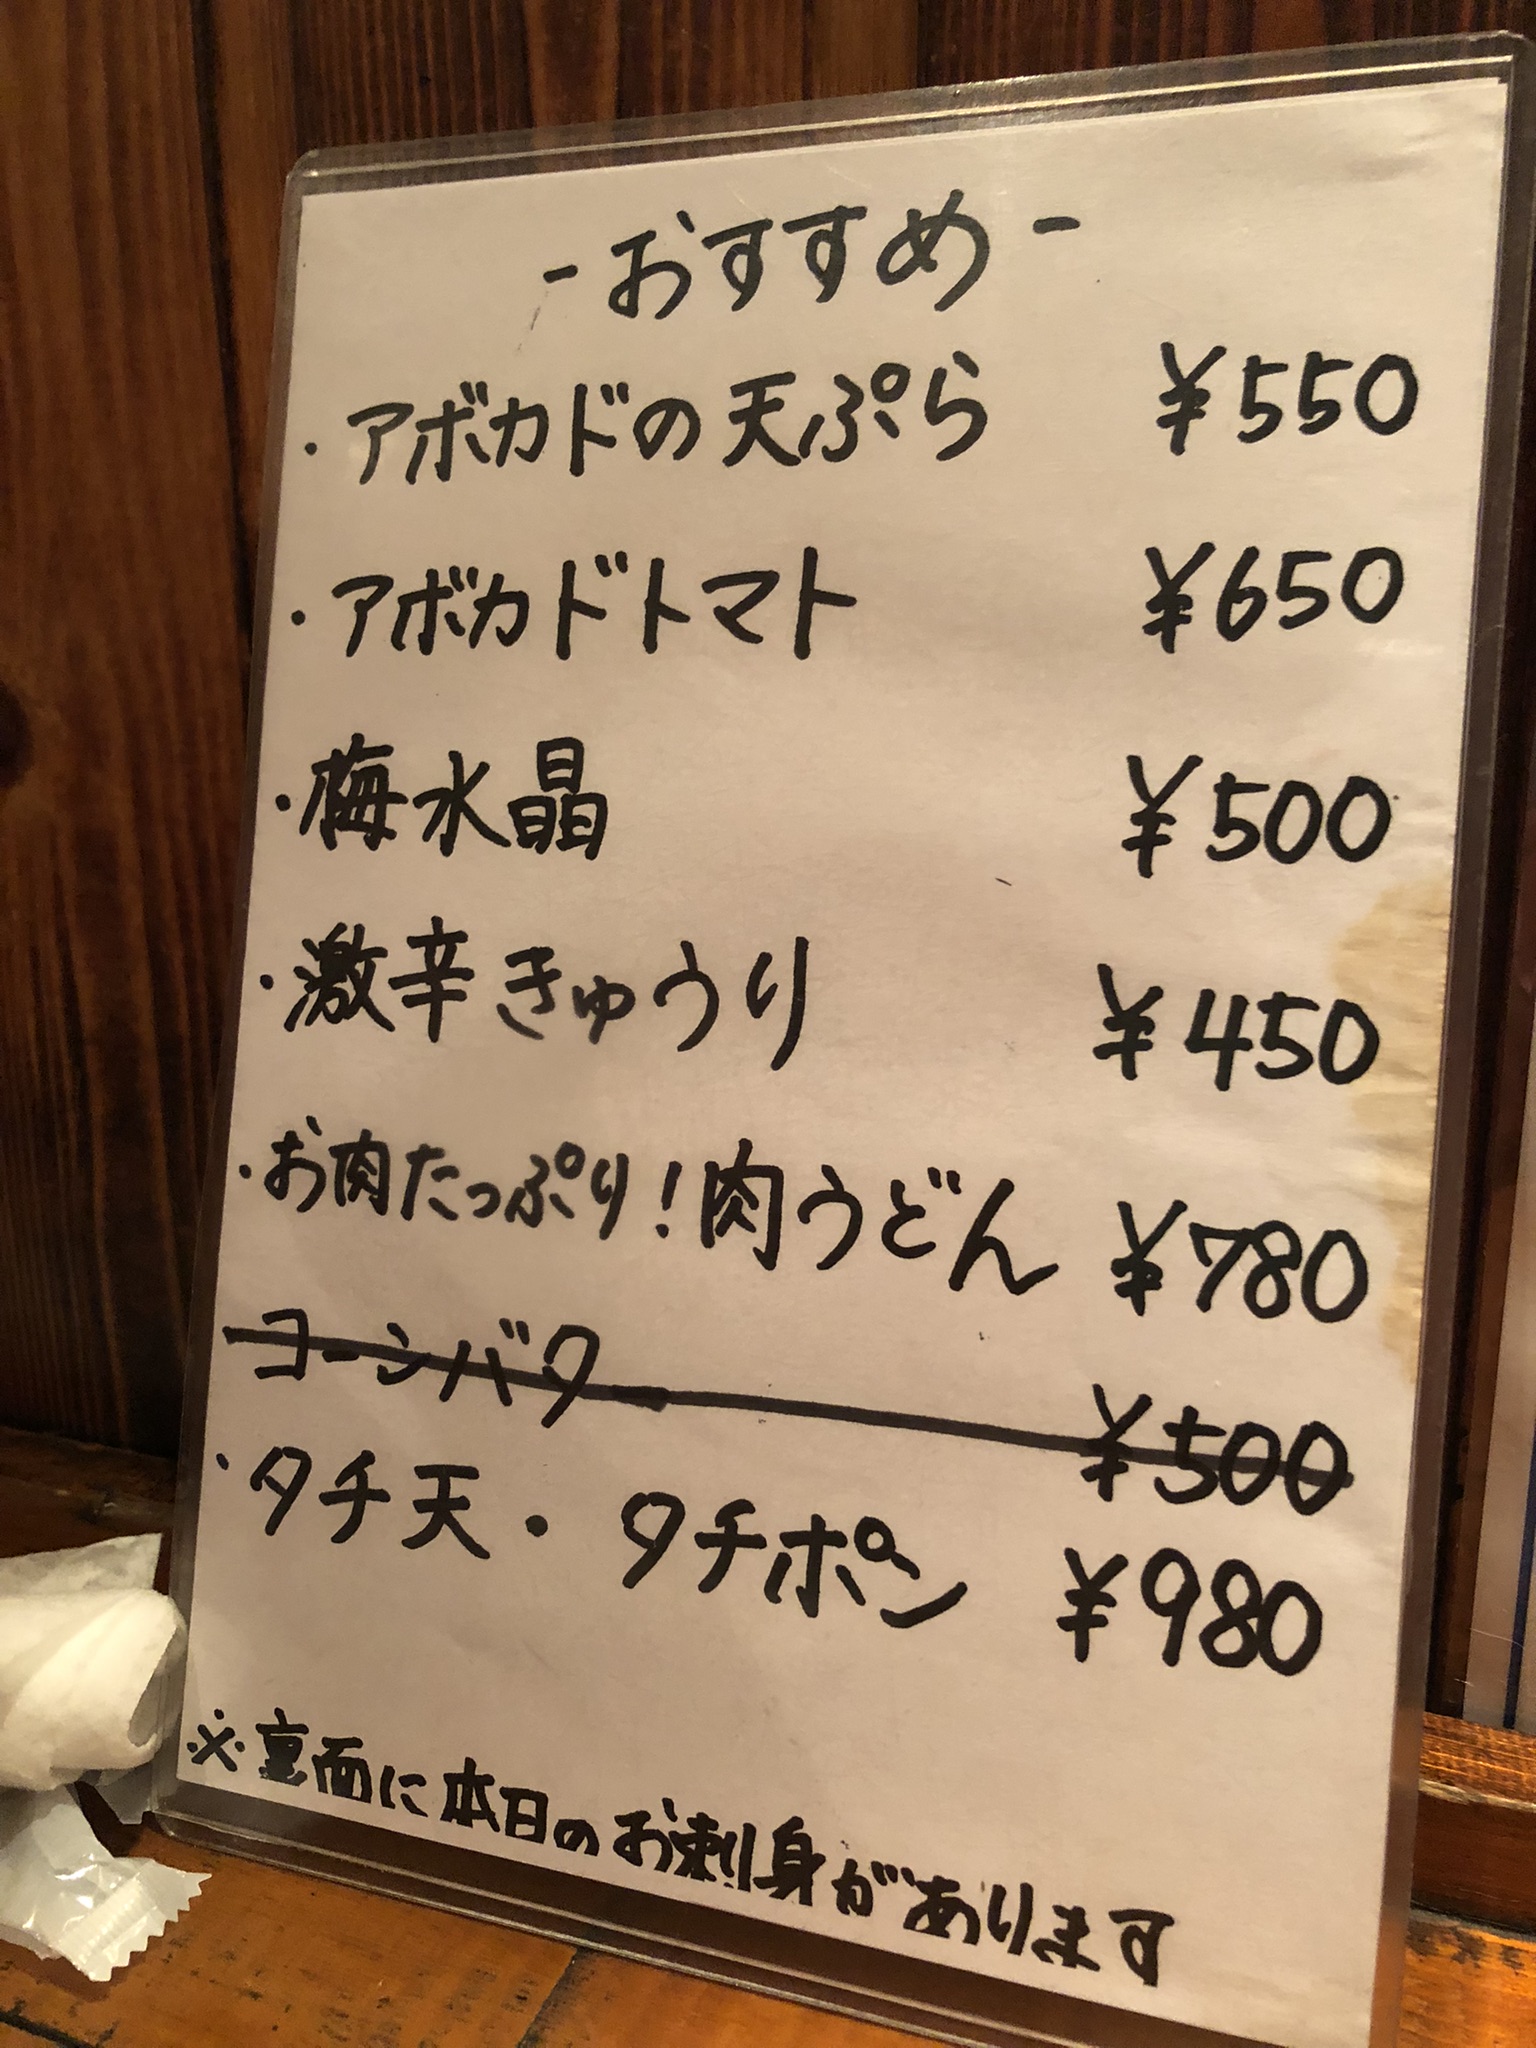 -おすすめ-
・アボカドの天ぷら ¥550
・アボカドトマト ¥650
・梅水晶 ¥500
・激辛きゅうり ¥450
・お肉たっぷり!肉うどん ¥780
コーンバター ¥500
・タチ天・タチポン ¥980
※裏面に本日のお刺身があります